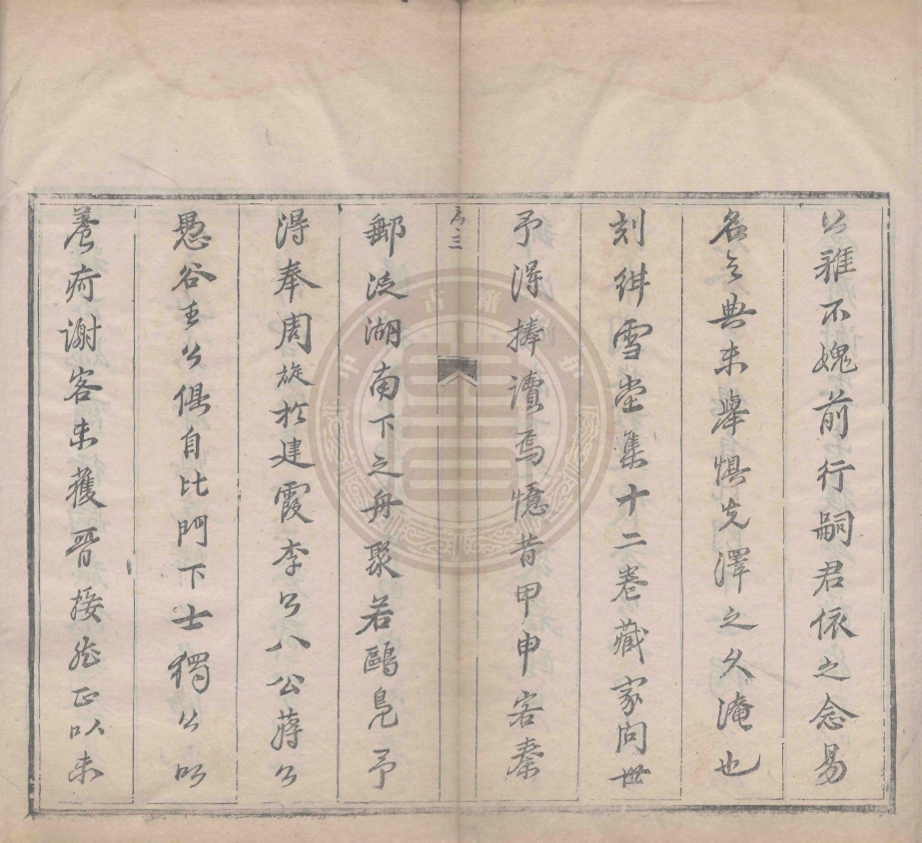 公雅不媿前行嗣君依之念易
名之典未舉懼先澤之久淹也
刻絳雪堂集十二卷藏家问世
予得捧讀焉憶昔甲申客秦
序三
郵泛湖南下之舟聚若鷗鳧予
得奉周旋於建霞李公八公蔣公
愚谷王公俱自比門下士獨公以
養疴謝客未獲晉接然正以未